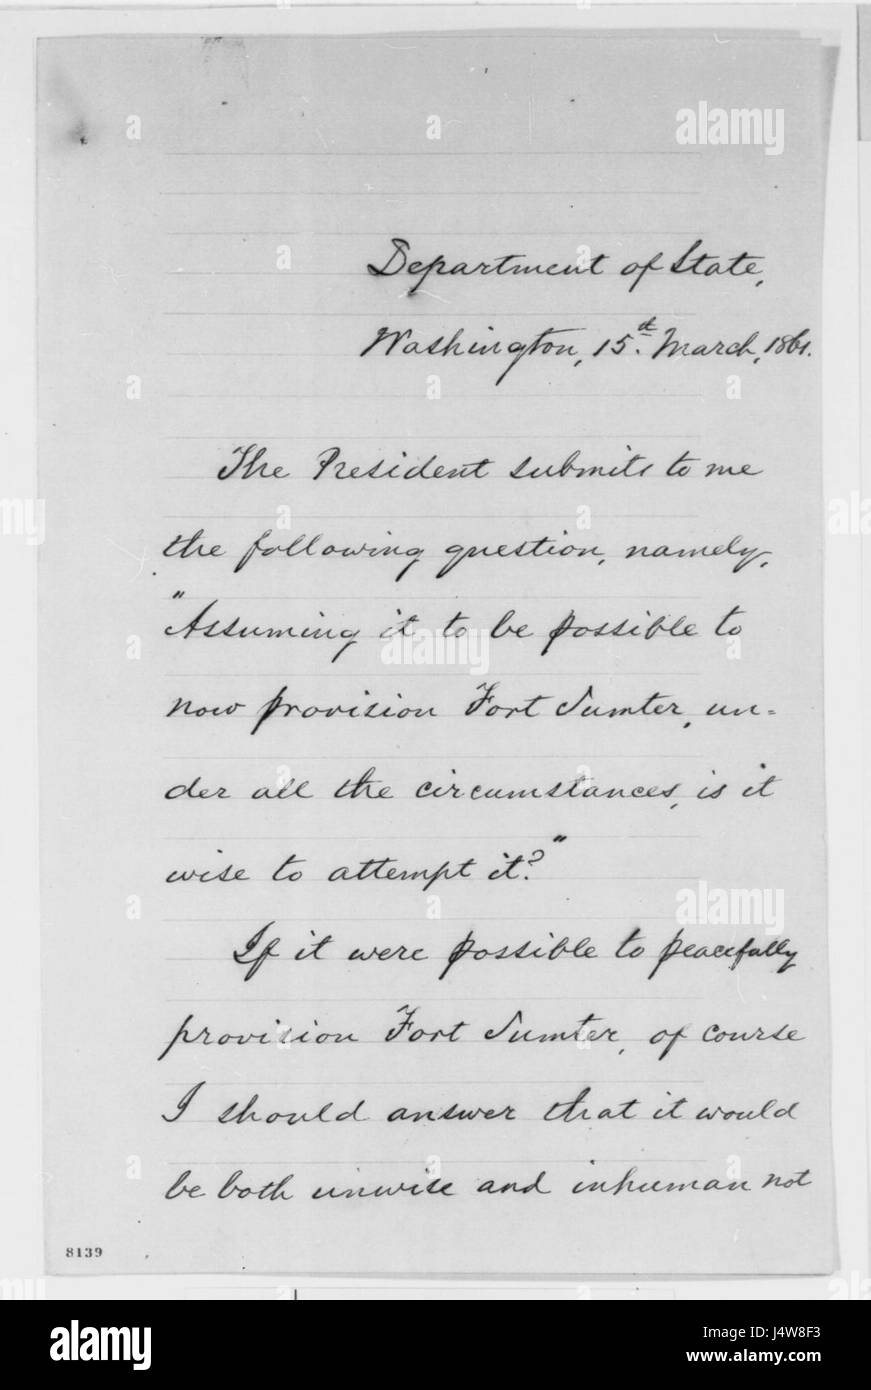 Department of State,
Washington, 15th. March, 1861.
The President submits to me
the following question, namely,
"Assuming it to be possible to
now provision Fort Sumter, un-
der all the circumstances, is it
wise to attempt it?"
If it were possible to peacefully
provision Fort Sumter, of course
I should answer that it would
be both unwise and inhuman not
8139
alamy
alamy
alamy
alamy
www.alamy.com
J4W8F3